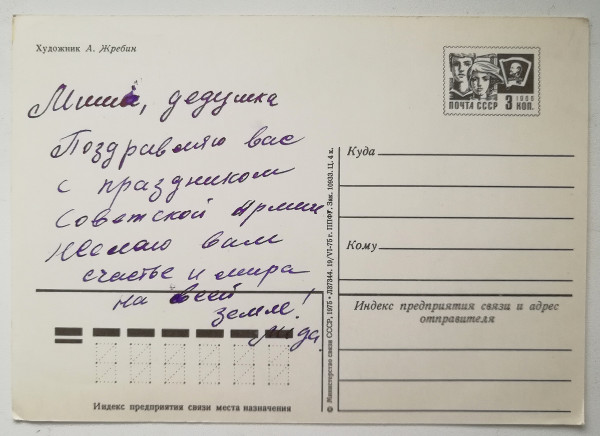 Художник А. Жребин
Миша, дедушка
Поздравляю вас
с праздником
Советской Армии
желаю вам
счастье и мира
на всей
земле!
ПОЧТА СССР 3 КОП.
1966
Куда
Кому
Индекс предприятия связи и адрес
отправителя
Индекс предприятия связи места назначения
© Министерство связи СССР, 1975 • Л37344. 19/VI-75 г. ППФГ. Зак. 10933. Ц. 4 к.